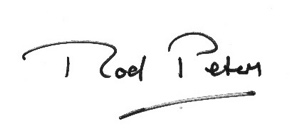 Rod Peters